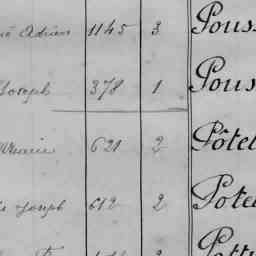 Adrien 1145 3 Pous
Joseph 378 1 Pous
621 2 Pôtel
Joseph 612 2 Potel